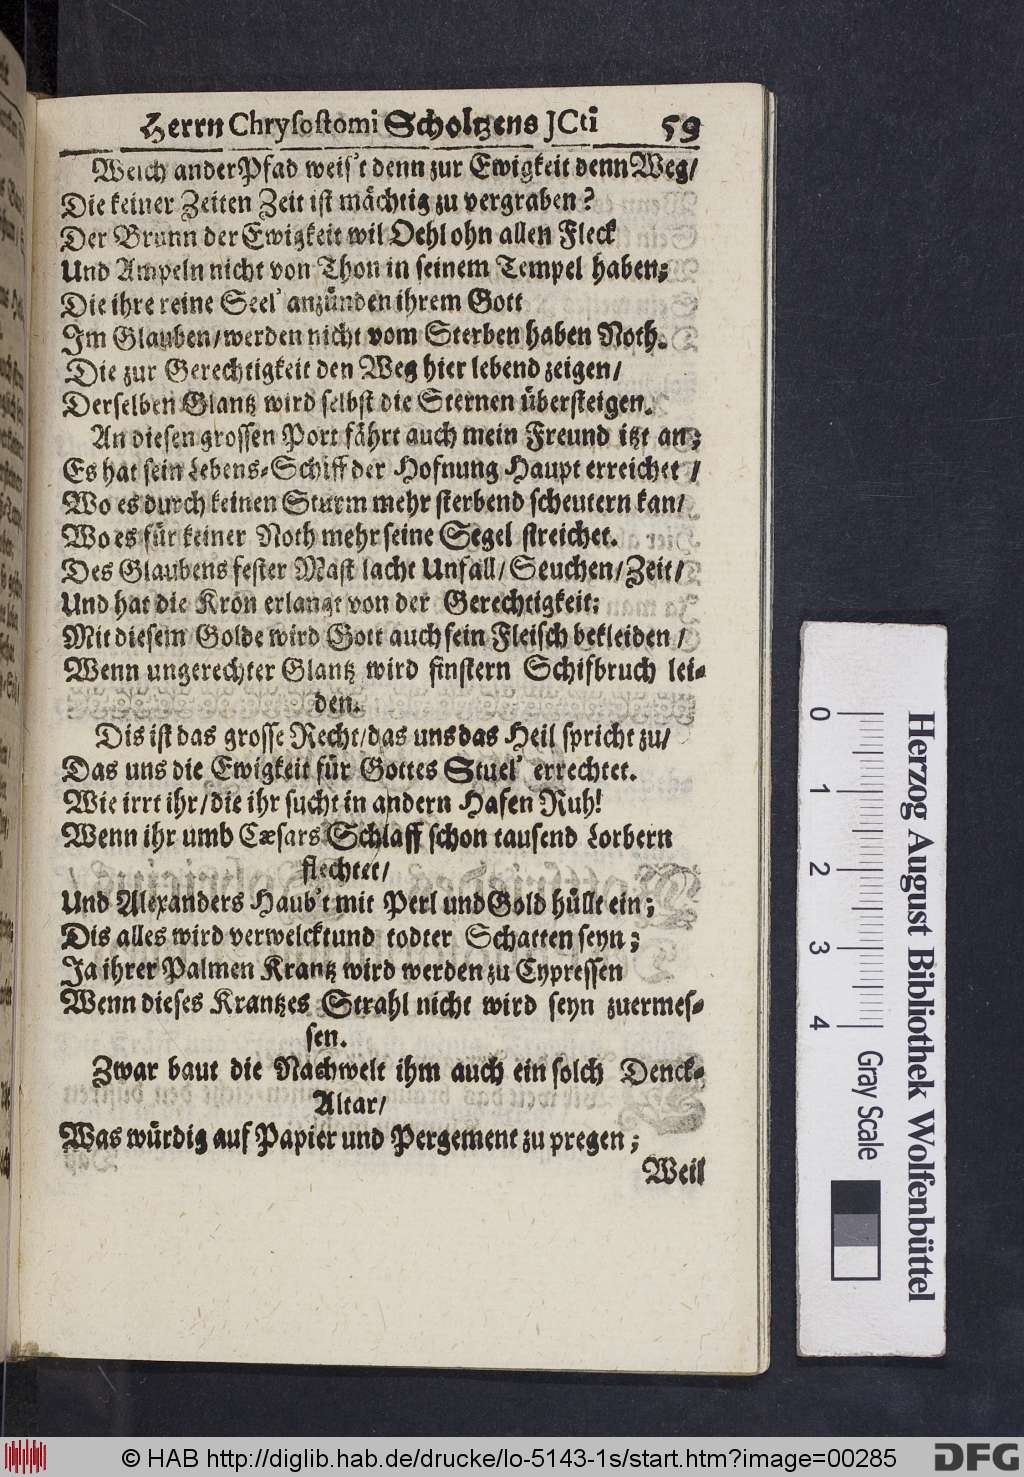 Herrn Chrysostomi Scholtzens JCti 59
Welch ander Pfad weis't denn zur Ewigkeit denn Weg/
Die keiner Zeiten Zeit ist mächtig zu vergraben?
Der Brunn der Ewigkeit wil Oehl ohn allen Fleck
Und Ampeln nicht von Thon in seinem Tempel haben;
Die ihre reine Seel' anzünden ihrem Gott
Im Glauben/werden nicht vom Sterben haben Noth.
Die zur Gerechtigkeit den Weg hier lebend zeigen/
Derselben Glantz wird selbst die Sternen übersteigen.
An diesen grossen Port fährt auch mein Freund itzt an;
Es hat sein Lebens-Schiff der Hofnung Haupt erreichet/
Wo es durch keinen Sturm mehr sterbend scheutern kan/
Wo es für keiner Noth mehr seine Segel streichet.
Des Glaubens fester Mast lacht Unfall/Seuchen/Zeit/
Und hat die Kron erlangt von der Gerechtigkeit;
Mit diesem Golde wird Gott auch sein Fleisch bekleiden/
Wenn ungerechter Glantz wird finstern Schifbruch lei-
den.
Dis ist das grosse Recht/das uns das Heil spricht zu/
Das uns die Ewigkeit für Gottes Stuel' errechtet.
Wie irrt ihr/die ihr sucht in andern Hafen Ruh!
Wenn ihr umb Cæsars Schlaff schon tausend Lorbern
flechtet/
Und Alexanders Haub't mit Perl und Gold hüllt ein;
Dis alles wird verwelckt und todter Schatten seyn;
Ja ihrer Palmen Krantz wird werden zu Cypressen
Wenn dieses Krantzes Strahl nicht wird seyn zuermes-
sen.
Zwar baut die Nachwelt ihm auch ein solch Denck-
Altar/
Was würdig auf Papier und Pergement zu pregen;
Weil
0 1 2 3 4
Gray Scale
Herzog August Bibliothek Wolfenbüttel
© HAB http://diglib.hab.de/drucke/lo-5143-1s/start.htm?image=00285
DFG